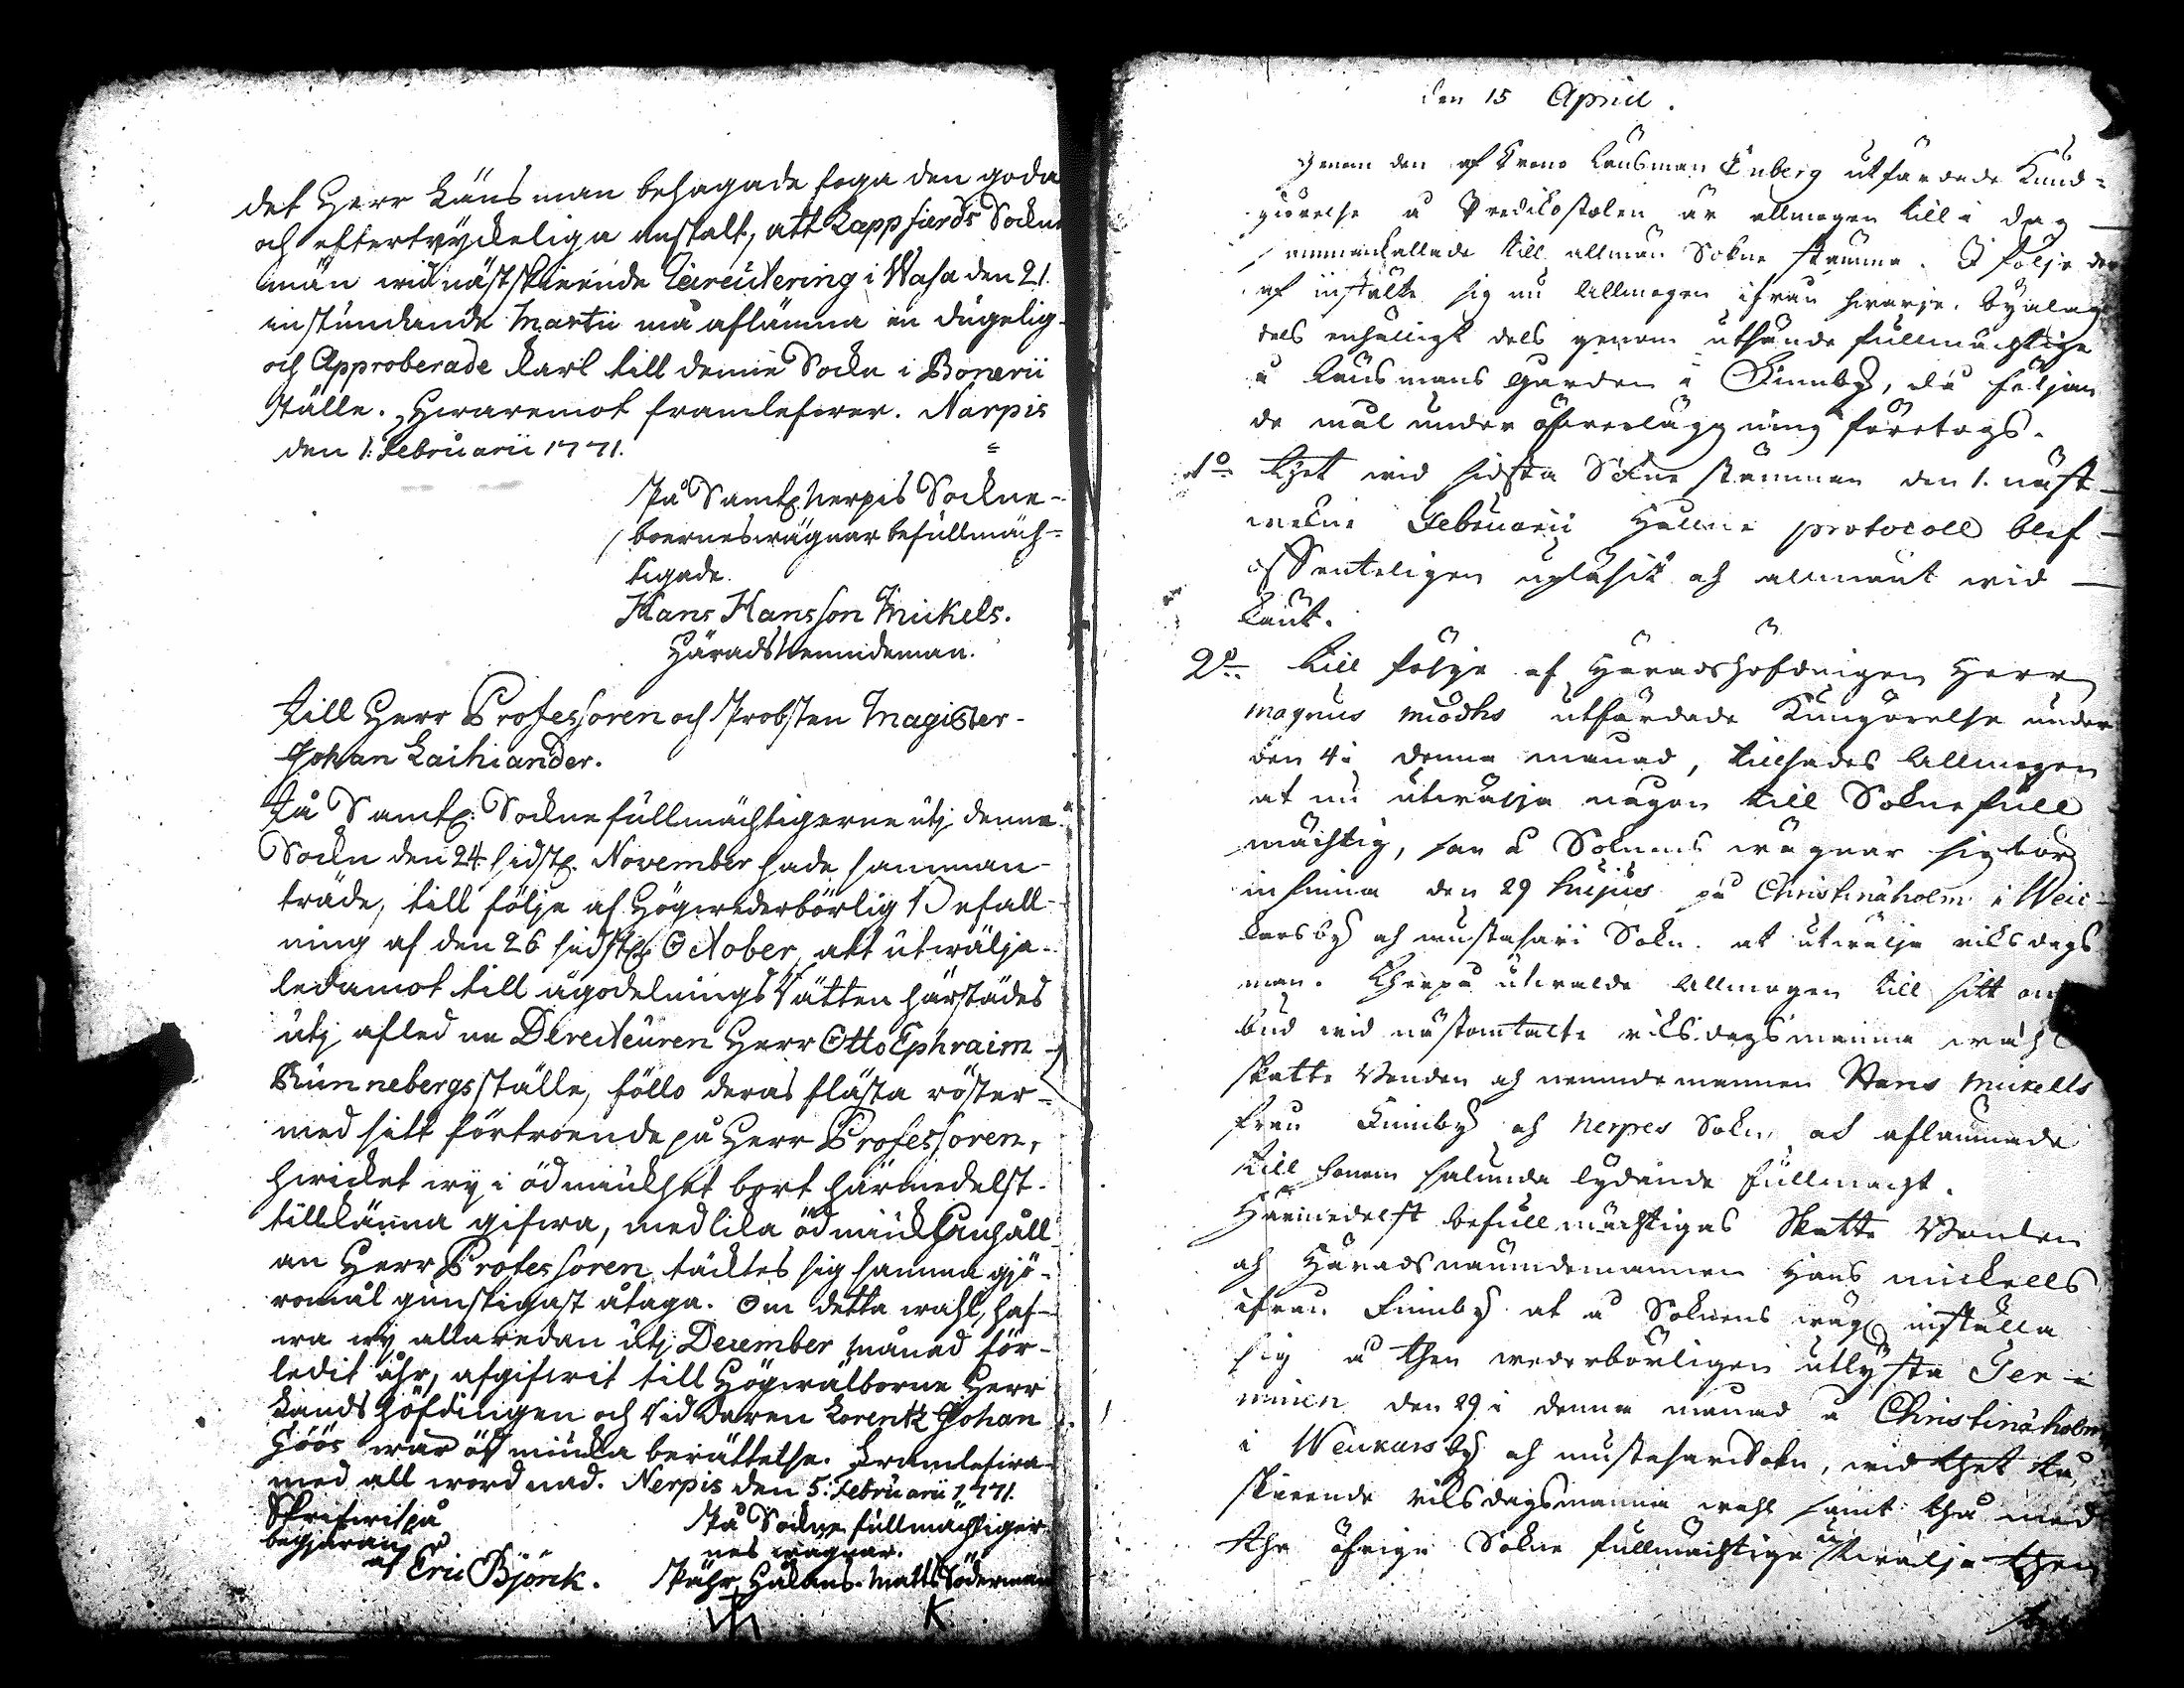 det Herr Länsman behagade foga den goda
och eftertryckeliga anstalt, att Lappfierds Sockne
män wid nästskieende Recreutering i Wasa den 21.
instundande Martii må aflämna en dugelig
och Approberade karl till denne Sockn i Bonærii
ställe. Hwaremot framlefwer. Narpis
den 1. Februarii 1771.
På Samtl. Nerpis Sockne-
boernes wägnar befullmäch-
tigade.
Hans Hansson Mickels.
Häradsnemndeman.
Till Herr Professoren och Probsten Magister
Johan Laihiander.
Då Samtl. Socknefullmächtigerne utj denne
Sockn den 24 sidstl. November hade samman-
träde, till följe af Högwederbörlig Befall-
ning af den 26 sidstl. October, att utwälja
ledamot till ägodelnings Rätten härstädes
utj afledne Directeuren Herr Otto Ephraim
Runnebergs ställe, föllo deras flästa röster
med sitt förtroende på Herr Professoren,
hwicket wy i ödmiukhet bort härmedelst
tillkänna gifwa, med lika ödmiuk anhåll
an Herr Professoren täcktes sig samma gjö-
romål gunstigast åtaga. Om detta wahl, haf-
wa wy allaredan utj December månad för-
ledit åhr, afgifwit till Högwälborne Herr
Landshöfdingen och Riddaren Lorentz Johan
Göös wår ödmiuka berättelse. Framlefwa
med all wördnad. Nerpis den 5. Februarii 1771.
Skrifwit på På Sockne fullmächtiger
begjäran nes wägnar.
af Eric Björck. Pähr Hálans. Matts Söderman
K
den 15 April.
Genom den af Krono Länsman Enberg utfärdade Kund-
giörelse å Predikostolen är allmogen till i dag
sammankallade till allmän Sokne stämma. I följe der
af instälte sig nu Allmogen ifrån hwarje byalag
dels enhälligt dels genom utsände fullmächtige
å Länsmans gården i Finnby, då följan
de mål under öfwerläggning företogs.
1o Thet wid sidsta Sokne stämman den 1. näst
wekne Februarii Hållne protocoll blef
offenteligen upläsit och allmänt wid
känt.
2o Till följe af Häradshöfdingen Herr
Magnus Miödhs utfärdade Kungörelse under
den 4 i denne månad, tillsades Allmogen
at nu utwälja någon till Soknefull
mächtig, som å Soknens wägnar sig bör
infinna den 29 hujus på Christinæholm i Weic-
karsby och Mustasari Sokn. at utwälja riksdags
man. Therpå utwalde Allmogen till sitt om
bud wid nästomtalte riksdagsmanna wahl
skatte Bonden och nemndemannen Hans Mickells
från Finnby och Nerpes Sokn, och aflämnade
till honom sålunda lydande fullmacht.
Härmedelst befullmächtigas Skatte Bonden
och Häradsnämndemannen Hans Mickells
ifrån Finnby at å Soknens wägn inställa
sig å then wederbörligen utlysta Ter-
minen den 29 i denne månad å Christinæholm
i Weikarsby och Mustasari Sokn, wid thet då
skieende riksdagsmanna wahl samt thå med
the öfrige Sokne fullmächtige utwälja then